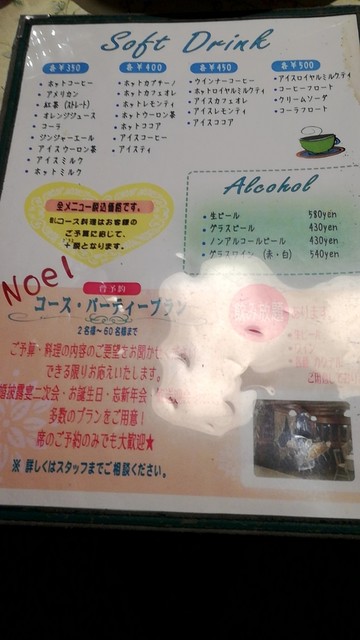 Soft Drink
各￥350
• ホットコーヒー
• アメリカン
• 紅茶 (ストレート)
• オレンジジュース
• コーラ
• ジンジャーエール
• アイスウーロン茶
• アイスミルク
• ホットミルク
各￥400
• ホットカプチーノ
• ホットカフェオレ
• ホットレモンティ
• ホットウーロン茶
• ホットココア
• アイスコーヒー
• アイスティ
各￥450
• ウインナーコーヒー
• ホットロイヤルミルクティ
• アイスカフェオレ
• アイスレモンティ
• アイスココア
各￥500
• アイスロイヤルミルクティ
• コーヒーフロート
• クリームソーダ
• コーラフロート
Alcohol
• 生ビール 580yen
• グラスビール 430yen
• ノンアルコールビール 430yen
• グラスワイン (赤・白) 540yen
全メニュー税込価格です。
コース料理はお客様の
ご予算に応じて、
となります。
Noel
要予約
コース・パーティープラン
2名様～60名様まで
ご予算・料理の内容のご要望をお聞かせ
できる限りお応えいたします。
婚披露宴二次会・お誕生日・忘新年会
多数のプランをご用意！
席のご予約のみでも大歓迎★
※ 詳しくはスタッフまでご相談ください。